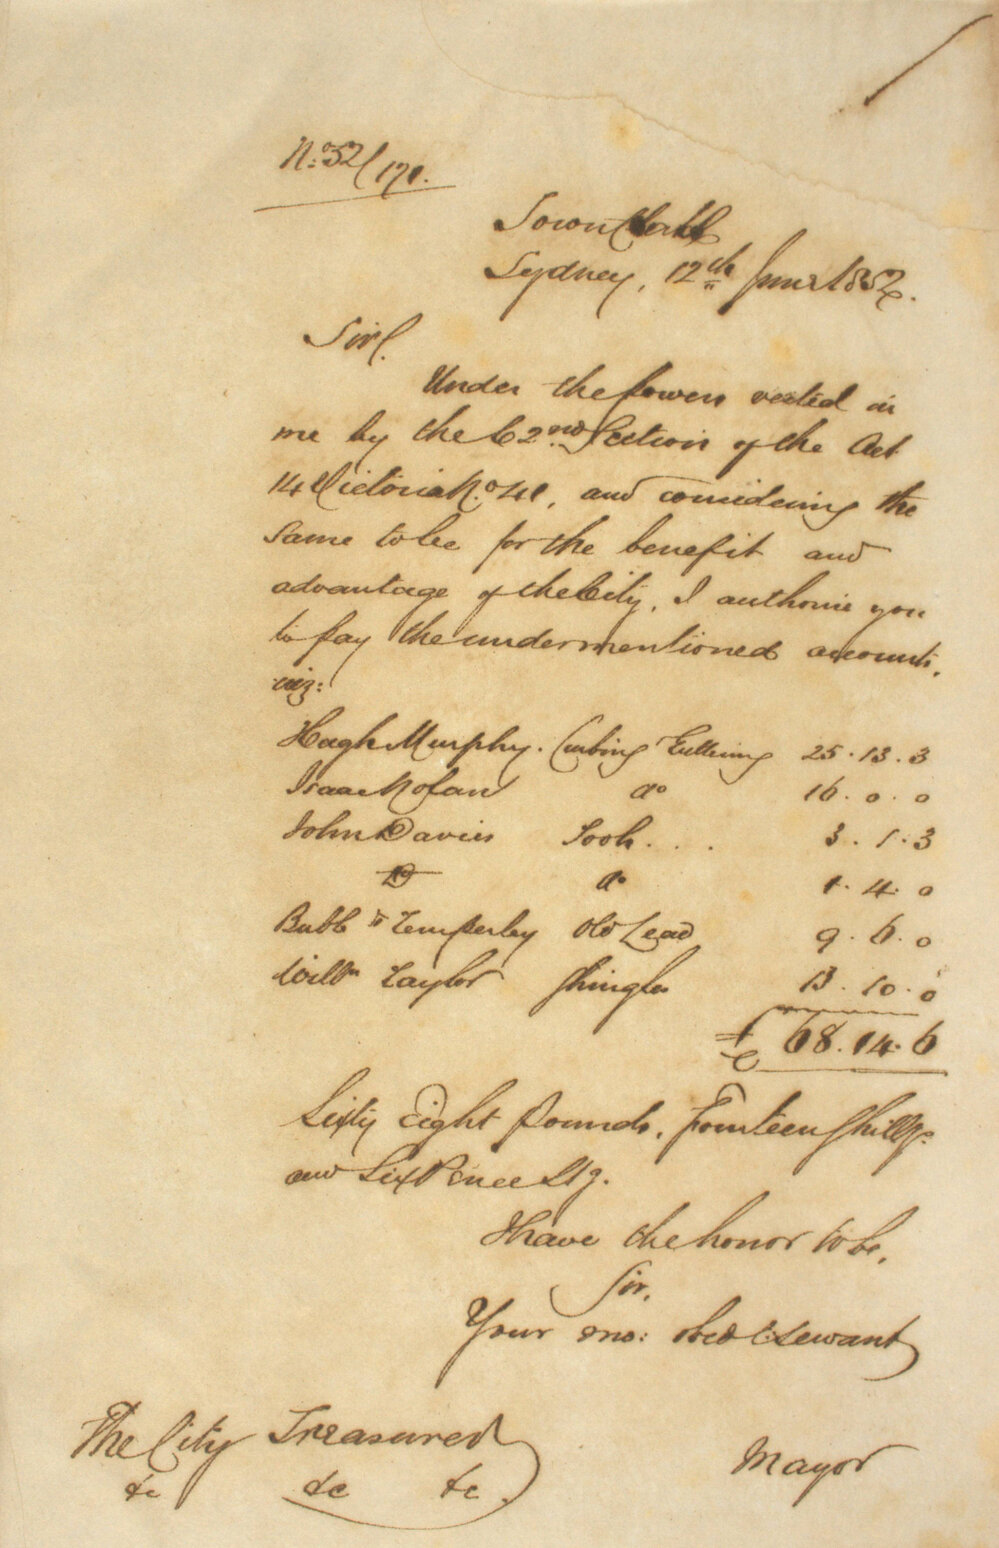 No. 52/170.
Town Hall
Sydney, 12th June 1852.
Sir,
Under the powers vested in
me by the 62nd Section of the Act
14 Victoria No. 41, and considering the
same to be for the benefit and
advantage of the City, I authorise you
to pay the undermentioned accounts,
viz:
Hugh Murphy. Curbing Guttering 25.13.3
Isaac Nolan do 16.0.0
John Davies Tools . . . 3.1.3
Do do 1.4.0
Bubb & Temperley Old Lead 9.6.0
Willm Taylor Shingles 13.10.0
£ 68.14.6
Sixty Eight Pounds, Fourteen Shillgs.
and Six Pence Stg.
I have the honor to be,
Sir,
Your mo: obedt. Servant
The City Treasurer
Mayor
&c &c &c.